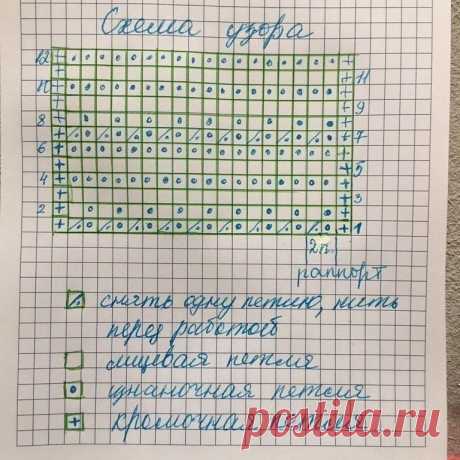 Схема узора
12
11
10
9
8
7
6
5
4
3
2
1
2п.
раппорт
снять одну петлю, нить
перед работой
лицевая петля
изнаночная петля
кромочная петля
postila.ru